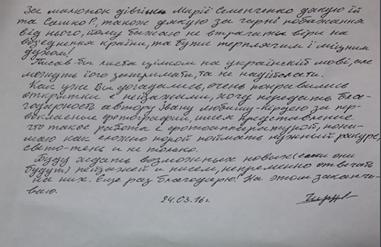 За малюнок дівчинки Марії Семенченко дякую їй
та Сашко!, також дякую за гарні побажання
від нього, йому бажаю не втрачати віри на
країни, та бути терплячим і міцним
духом!
Писав би листа цілком на українській мові, але
можуть його затримати, та не надіслати.
Как уже догадались, очень понравились
открытки с пейзажами, хочу передать бла-
годарность автору Ивану за пре-
фотографии, имею представление
что такое работа с фотоаппаратурой, пони-
маю как сложно порой поймать нужный ракурс,
свето-тень и не только.
Буду ждать возможных новых (если они
будут) пейзажей и писем, непременно отвечать
на них. Еще раз благодарю! На этом заканчи-
ваю.
24.03.16г.